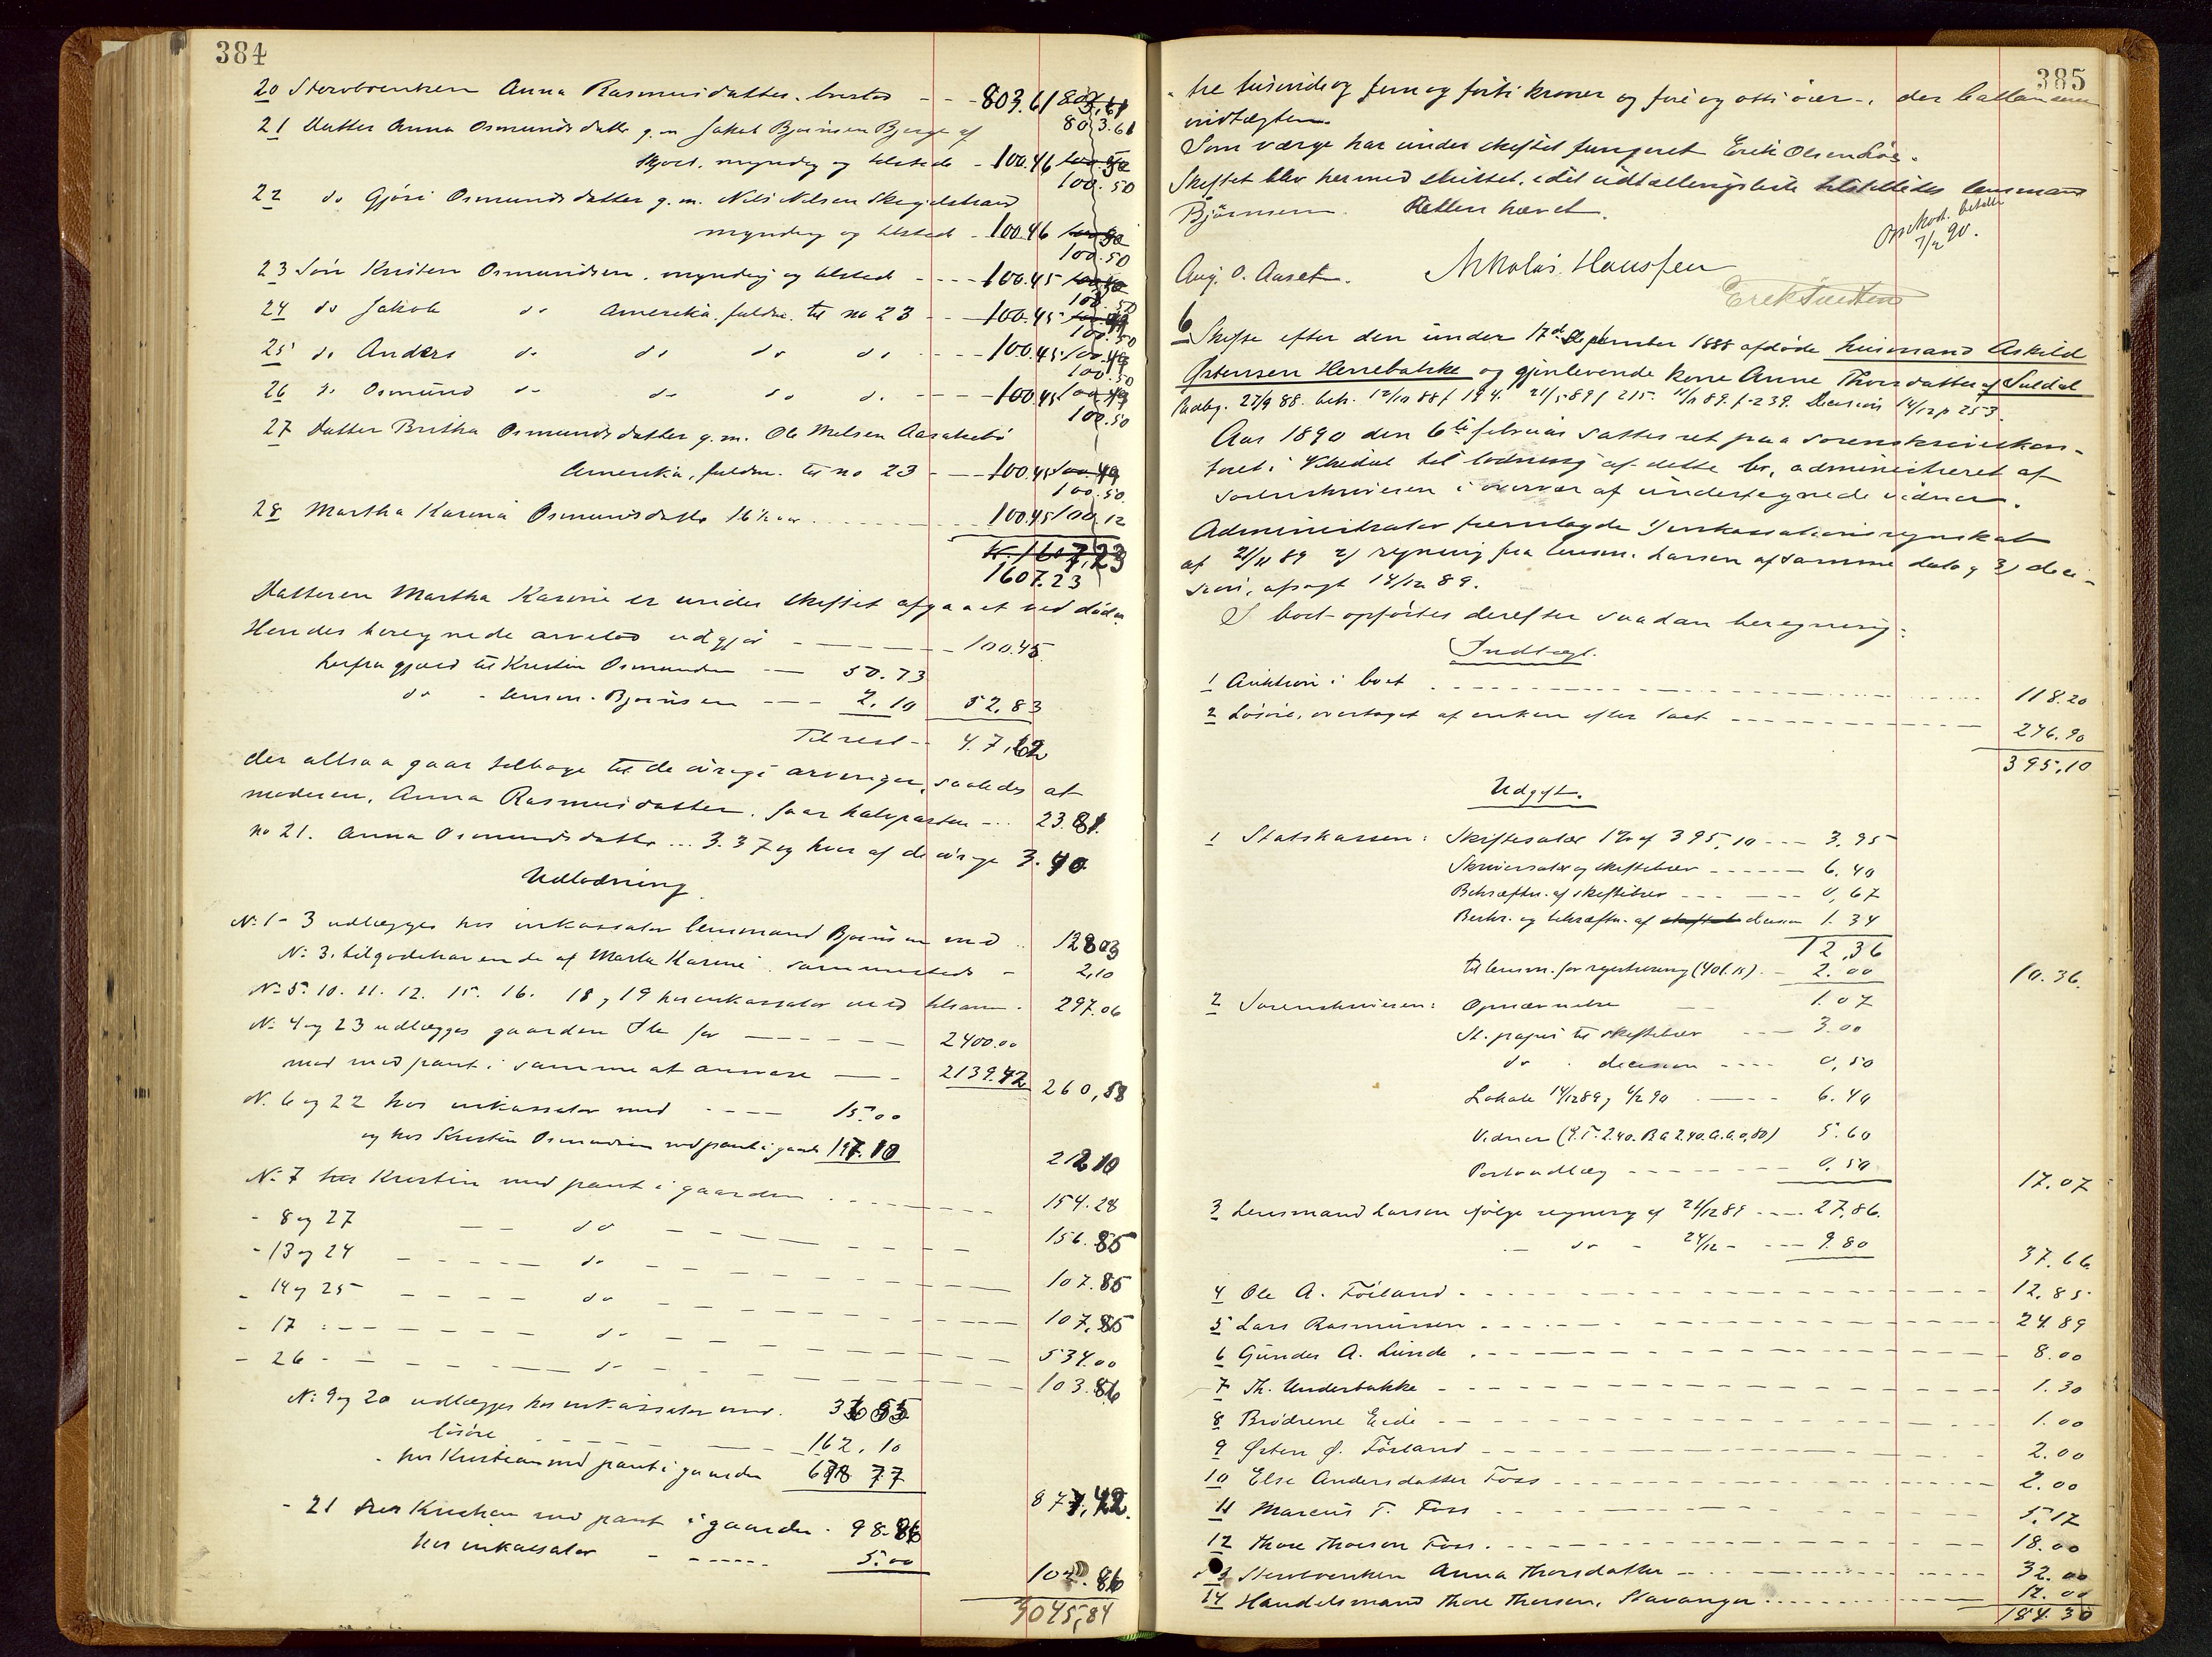 384
20 Stervboenken Anna Rasmusdatter - - - 803.61
803.61
21 Datter Anna Osmundsdatter g.m. Jakob Bjørnsen Berge af
Skjold, myndig og tilstede - 100.46
100.50
22 do Gjøri Osmundsdatter g.m. Nils Nilsen
myndig og tilstede - 100.46
100.50
23 Søn Kristen Osmundsen, myndig og tilstede - - - - 100.45
24 do Jakob do Amerika, fuldm. til no 23 - - - 100.45
25 do Anders do do do do - - - - 100.45
100.50
26 do Osmund do do do do - - - - 100.45
100.50
27 Datter Britha Osmundsdatter g.m. Ole
Amerika, fuldm. til no 23 - - - 100.45
100.50
28 Martha Karina Osmundsdatter 16½ aar - - - 100.45 100.12
1607.23
1607.23
Datteren Martha Karine er under skiftet afgaaet ved døden
Hendes beregnede arvelod udgjør - - - - 100.45
herfra gjæld til Kristen Osmundsen - - 50.73
do - lensm. Bjørnsen - - - 2.10 52.83
Til rest - - 47.62
der altsaa gaar tilbage til de øvrige arvinger, saaledes at
moderen, Anna Rasmusdatter, faar halvparten - .. 23.81
no 21. Anna Osmundsdatter ... 3.37 og hver af de øvrige 3.40
Udlodning
No 1-3 udlægges hos inkassator lensmand Bjørnsen med ..
No 3. tilgodehavende af Marta Karine, sammesteds - 2,10
No 5. 10. 11. 12. 15. 16. 18 og 19 hos inkassator med tilsam. 297.06
No 4 og 23 udlægges gaarden for - - - - - 2400.00
mod med pant i samme at - - - 2139.42 260,58
No 6 og 22 hos inkassator med - - - - 15.00
og hos Kristen Osmundsen med pant i gaarden 197.10
212.10
No 7 hos Kristen med pant i gaarden - - - - 154.28
- 8 og 27 - - do - - - - - 156.85
- 13 og 24 - - - - do - - - - - 107.85
- 14 og 25 - - - - do - - - - - 107.85
- 17 - - - - - do - - - - - 534.00
- 26 - - - - - do - - - - - 103.86
No 9 og 20 udlægges hos inkassator med
løsøre - - - - - 162.10
- hos Kristian med pant i gaarden 77
- 21 hos Kristian med pant i gaarden - 98.86
hos inkassator - - - - - 5.00
3045,84
385
- tre tusinde og fem og førti kroner og fire og otti øre -, der
indtægten.
Som værge har under skiftet fungeret Erik Olsen
Skiftet blev hermed sluttet, idet udtællingsliste tilstilledes lensmand
Bjørnsen. Retten hævet.
Omkost. betalte
7/2 90.
Aug. O. Aaset. Nikolai Haussen
6 Skifte efter den under 17de September 1888 afdøde husmand Askild
Østensen Herrebakke og gjenlevende kone Anne Thorsdatter af Suldal
27/9 88. beh. 12/10 88 f 194. 21/5 89 f 215. 11/11 89. f 239. Decision 14/12 p 253.
Aar 1890 den 6te februar sattes ret paa sorenskriverkon-
toret i til lodning af dette bo, administreret af
sorenskriveren i overvær af undertegnede vidner.
Administrator fremlagde 1) inkassationsregnskab
af 21/11 89 2) regning fra lensm. Larsen af samme dato og 3) deci-
sion, afsagt 14/12 89.
I boet opførtes derefter saadan beregning:
Indtægt.
1 Auktion i boet - - - - - 118.20
2 Løsøre, overtaget af enken efter taxt - - - - - 276.90
395,10
Udgift.
1 Statskassen: Skiftesalær 1% af 395,10 - - - 3.95
Skriversalær og skiftebrev - - - - - - 6.40
Bekræftn. af skiftebrev - - - - - - 0,67
Beskr. og bekræftn. af decision 1.34
12,36
til lensm. for registrering (401.15) - 2.00 10.36.
2 Sorenskriveren: Opnævnelse - - 1.07
St. papir til skiftebrev - - - 3.00
do - decision - - - - 0,50
Lokale 14/12 89 og 6/2 90 - - - - 6.40
Vidner (E.T. 2.40. R.A. 2.40. A.A. 0,80) 5.60
Portoudlæg - - - - - - 0.50 17.07
3 Lensmand Larsen ifølge regning af 21/12 89 - - - - 27,86.
- do - 24/12 - - - - 9.80 37.66
4 Ole A. Foiland - - - - - 12.85
5 Lars Rasmussen - - - - - 24.89
6 Gunder A. Lunde - - - - - 8.00
7 Th. Underbakke - - - - - 1.30
8 Brødrene Eide - - - - - 1.00
9 Østen Ø. Førland - - - - - 2.00
10 Else Andersdatter Foss - - - - - 2.00
11 Marcus T. Foss - - - - - 5.17
12 Thore Thorson Foss - - - - - 18.00
13 Stervboenken Anna Thorsdatter - - - - - 32.00
14 Handelsmand Thore Thorsen, Stavanger - - - - - 12.00
184.30